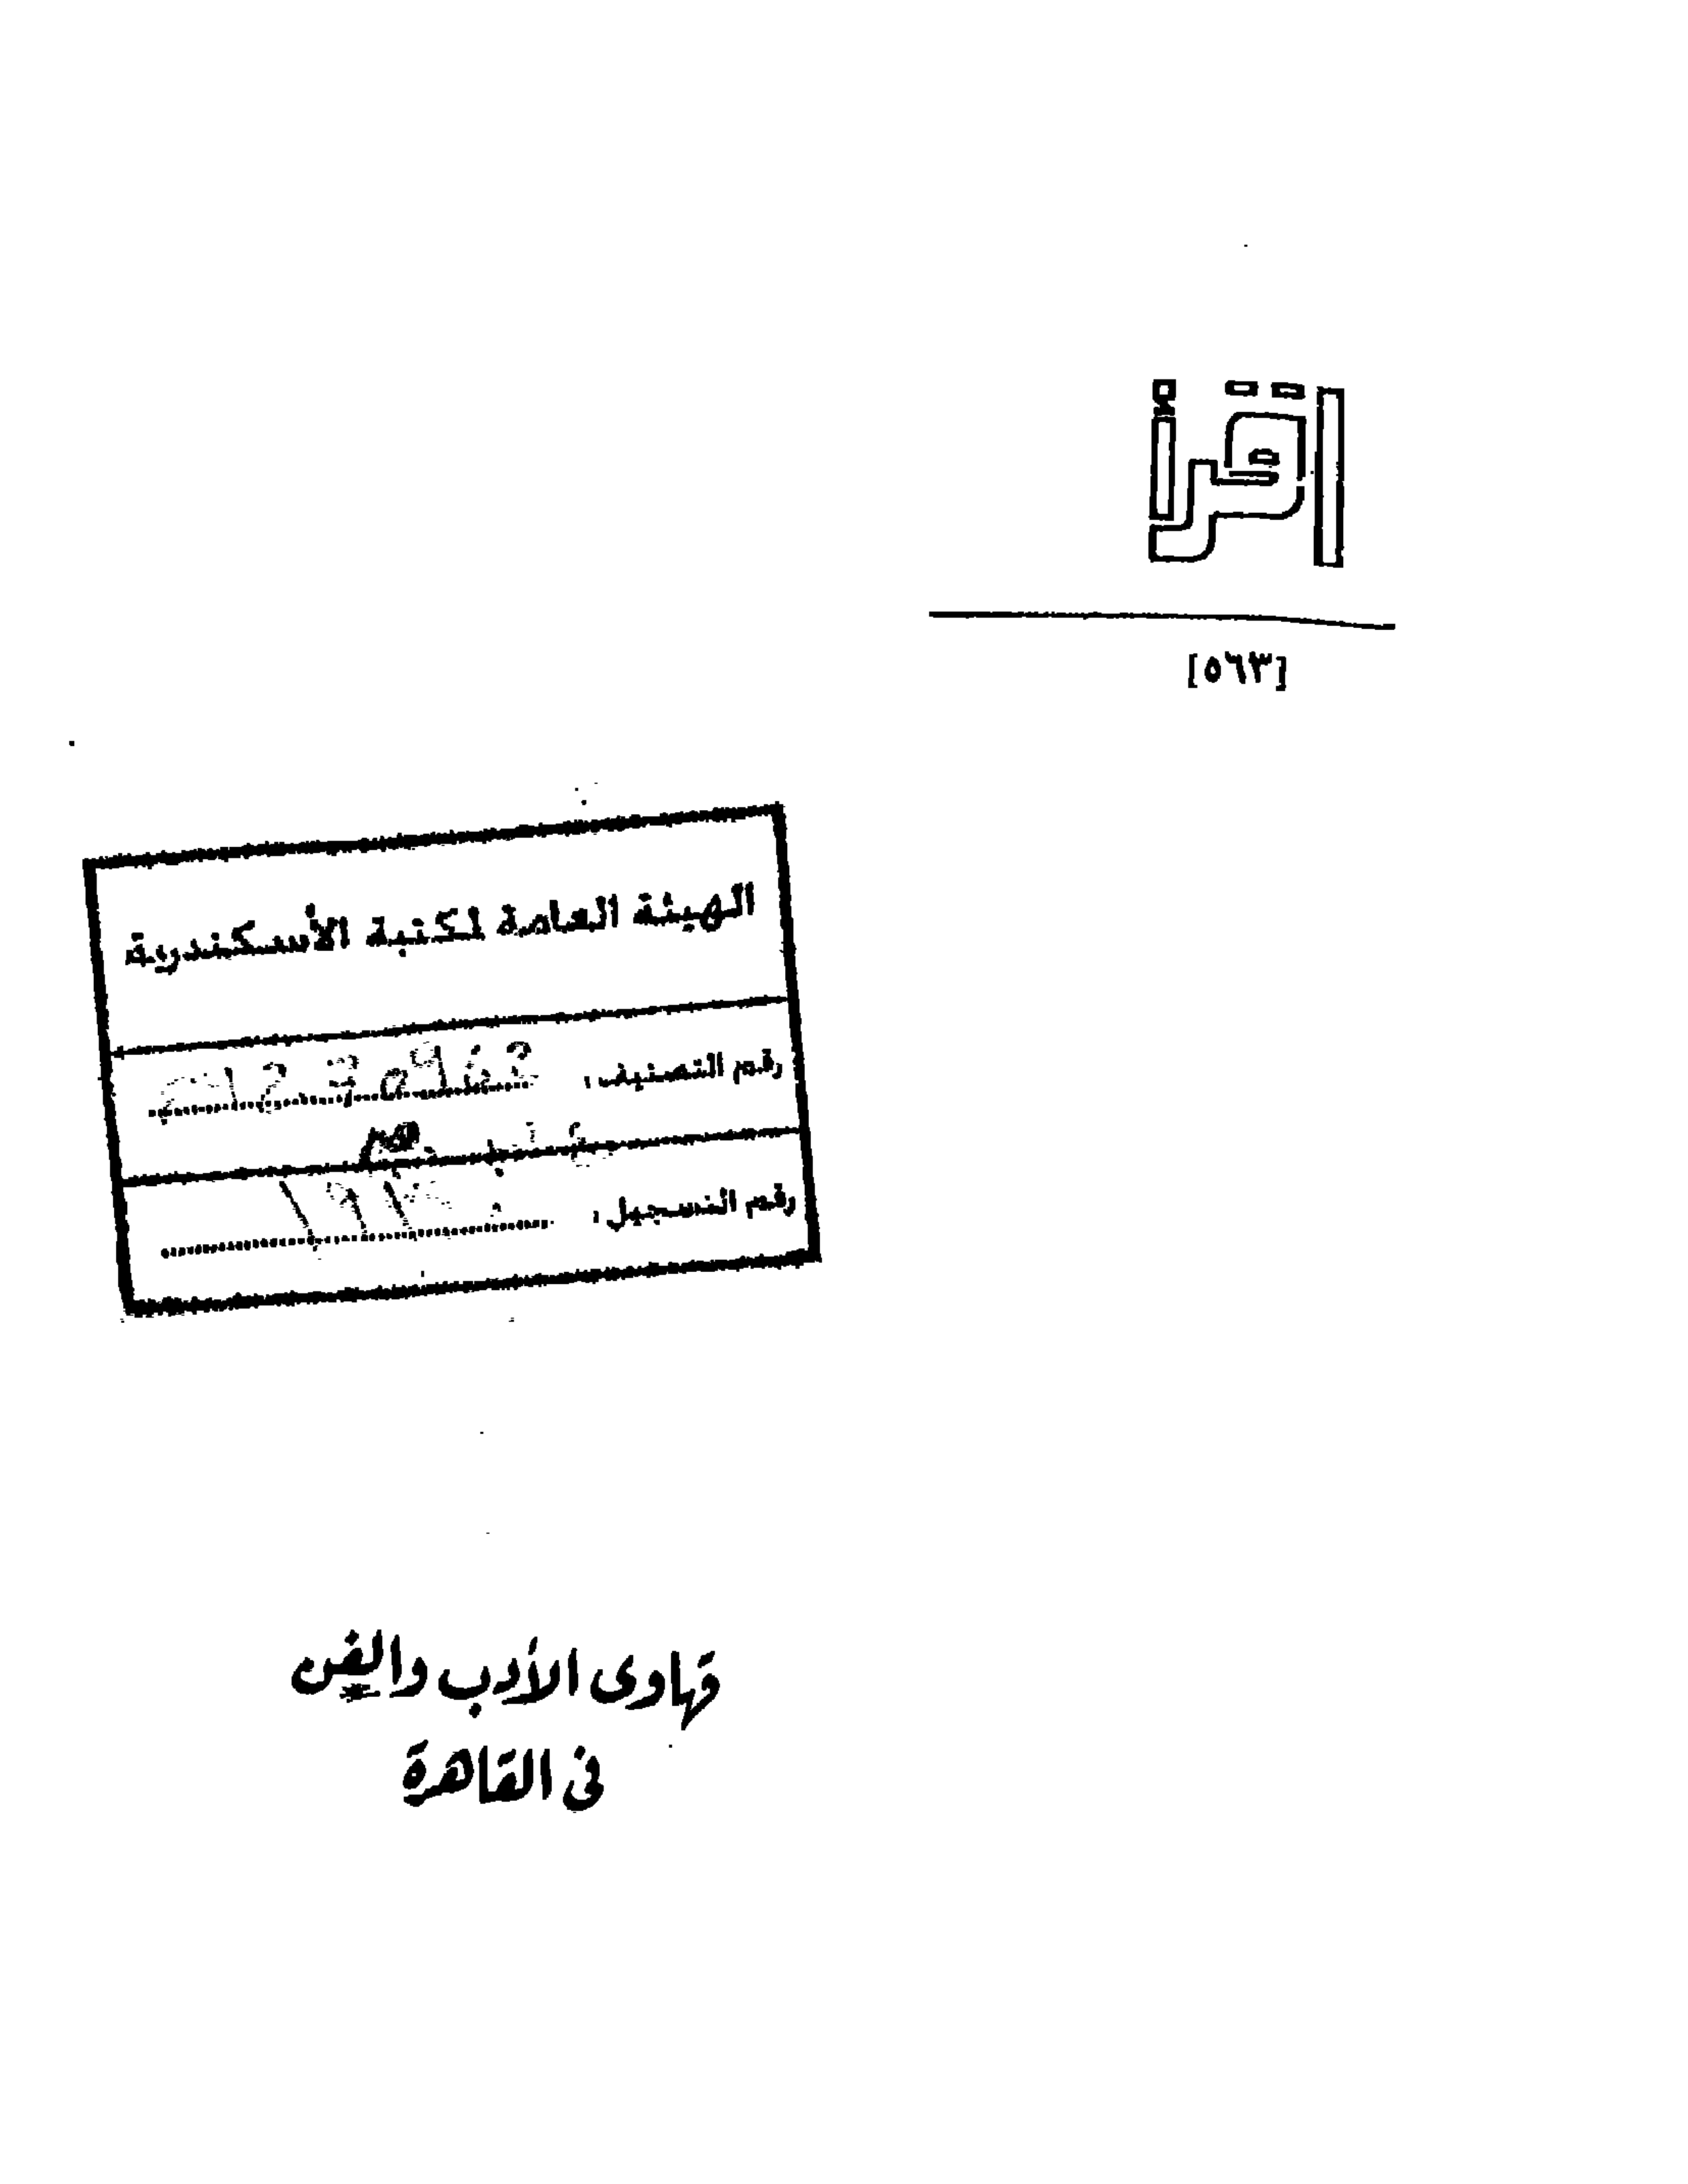 اقرأ
[٥٦٣]
الهيئة العامة لكتبة الأسكندرية
رقم التصنيف :
رقم التسجيل :
قهاوى الأدب والفن
فى القاهرة